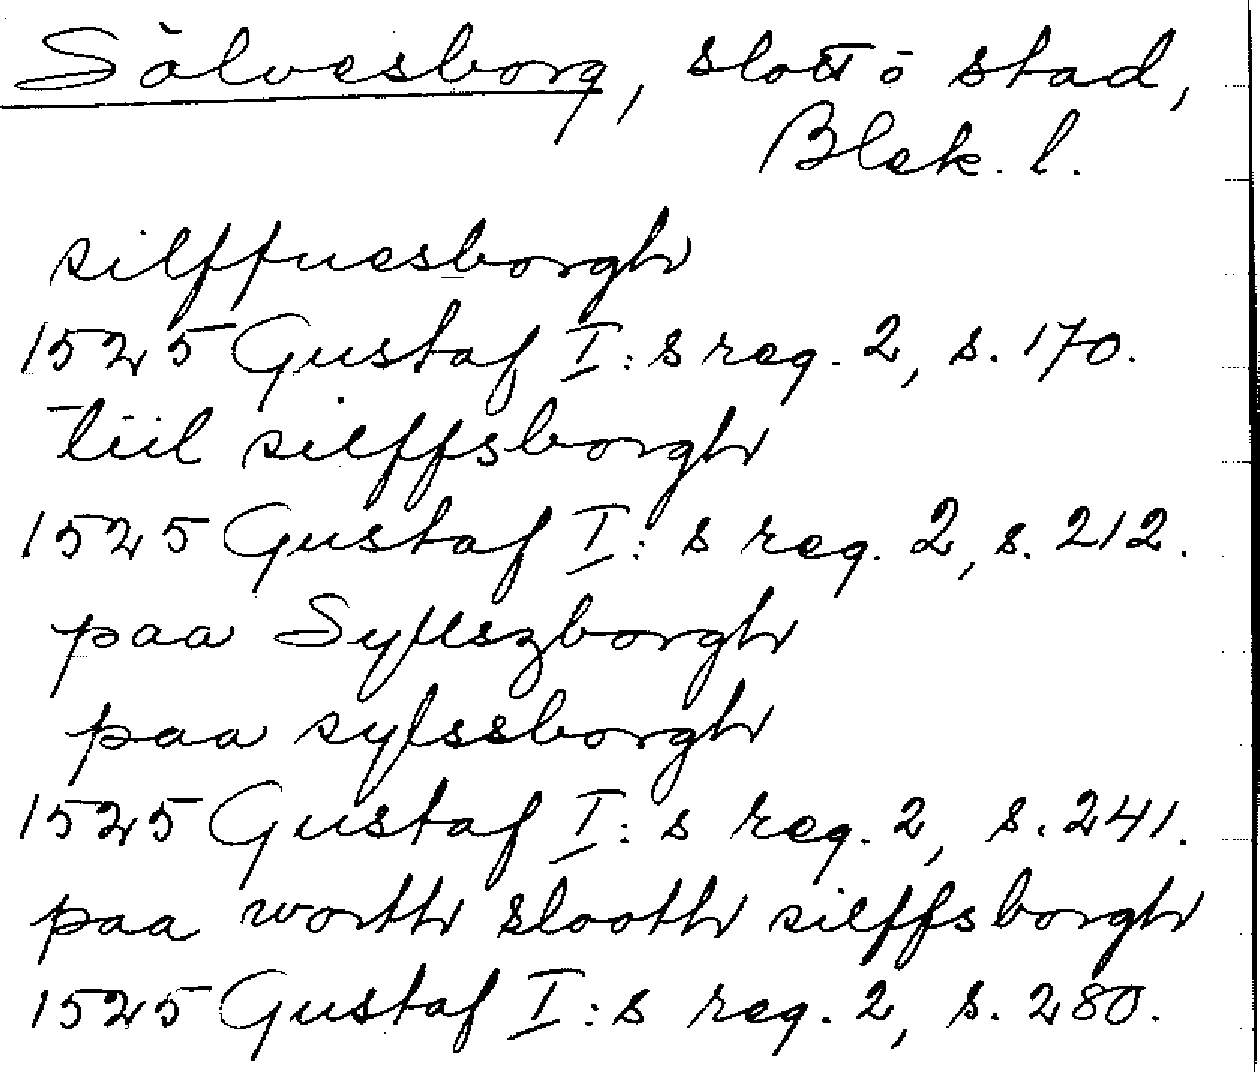 Sölvesborg, slott o stad,
Blek. l.
silffuesborgh
1525 Gustaf I:s reg. 2, s. 170.
tiil silffsborgh
1525 Gustaf I:s reg. 2, s. 212.
paa Sylfszborgh
paa sylfssborgh
1525 Gustaf I:s reg. 2, s. 241.
paa worth slooth silffsborgh
1525 Gustaf I:s reg. 2, s. 280.